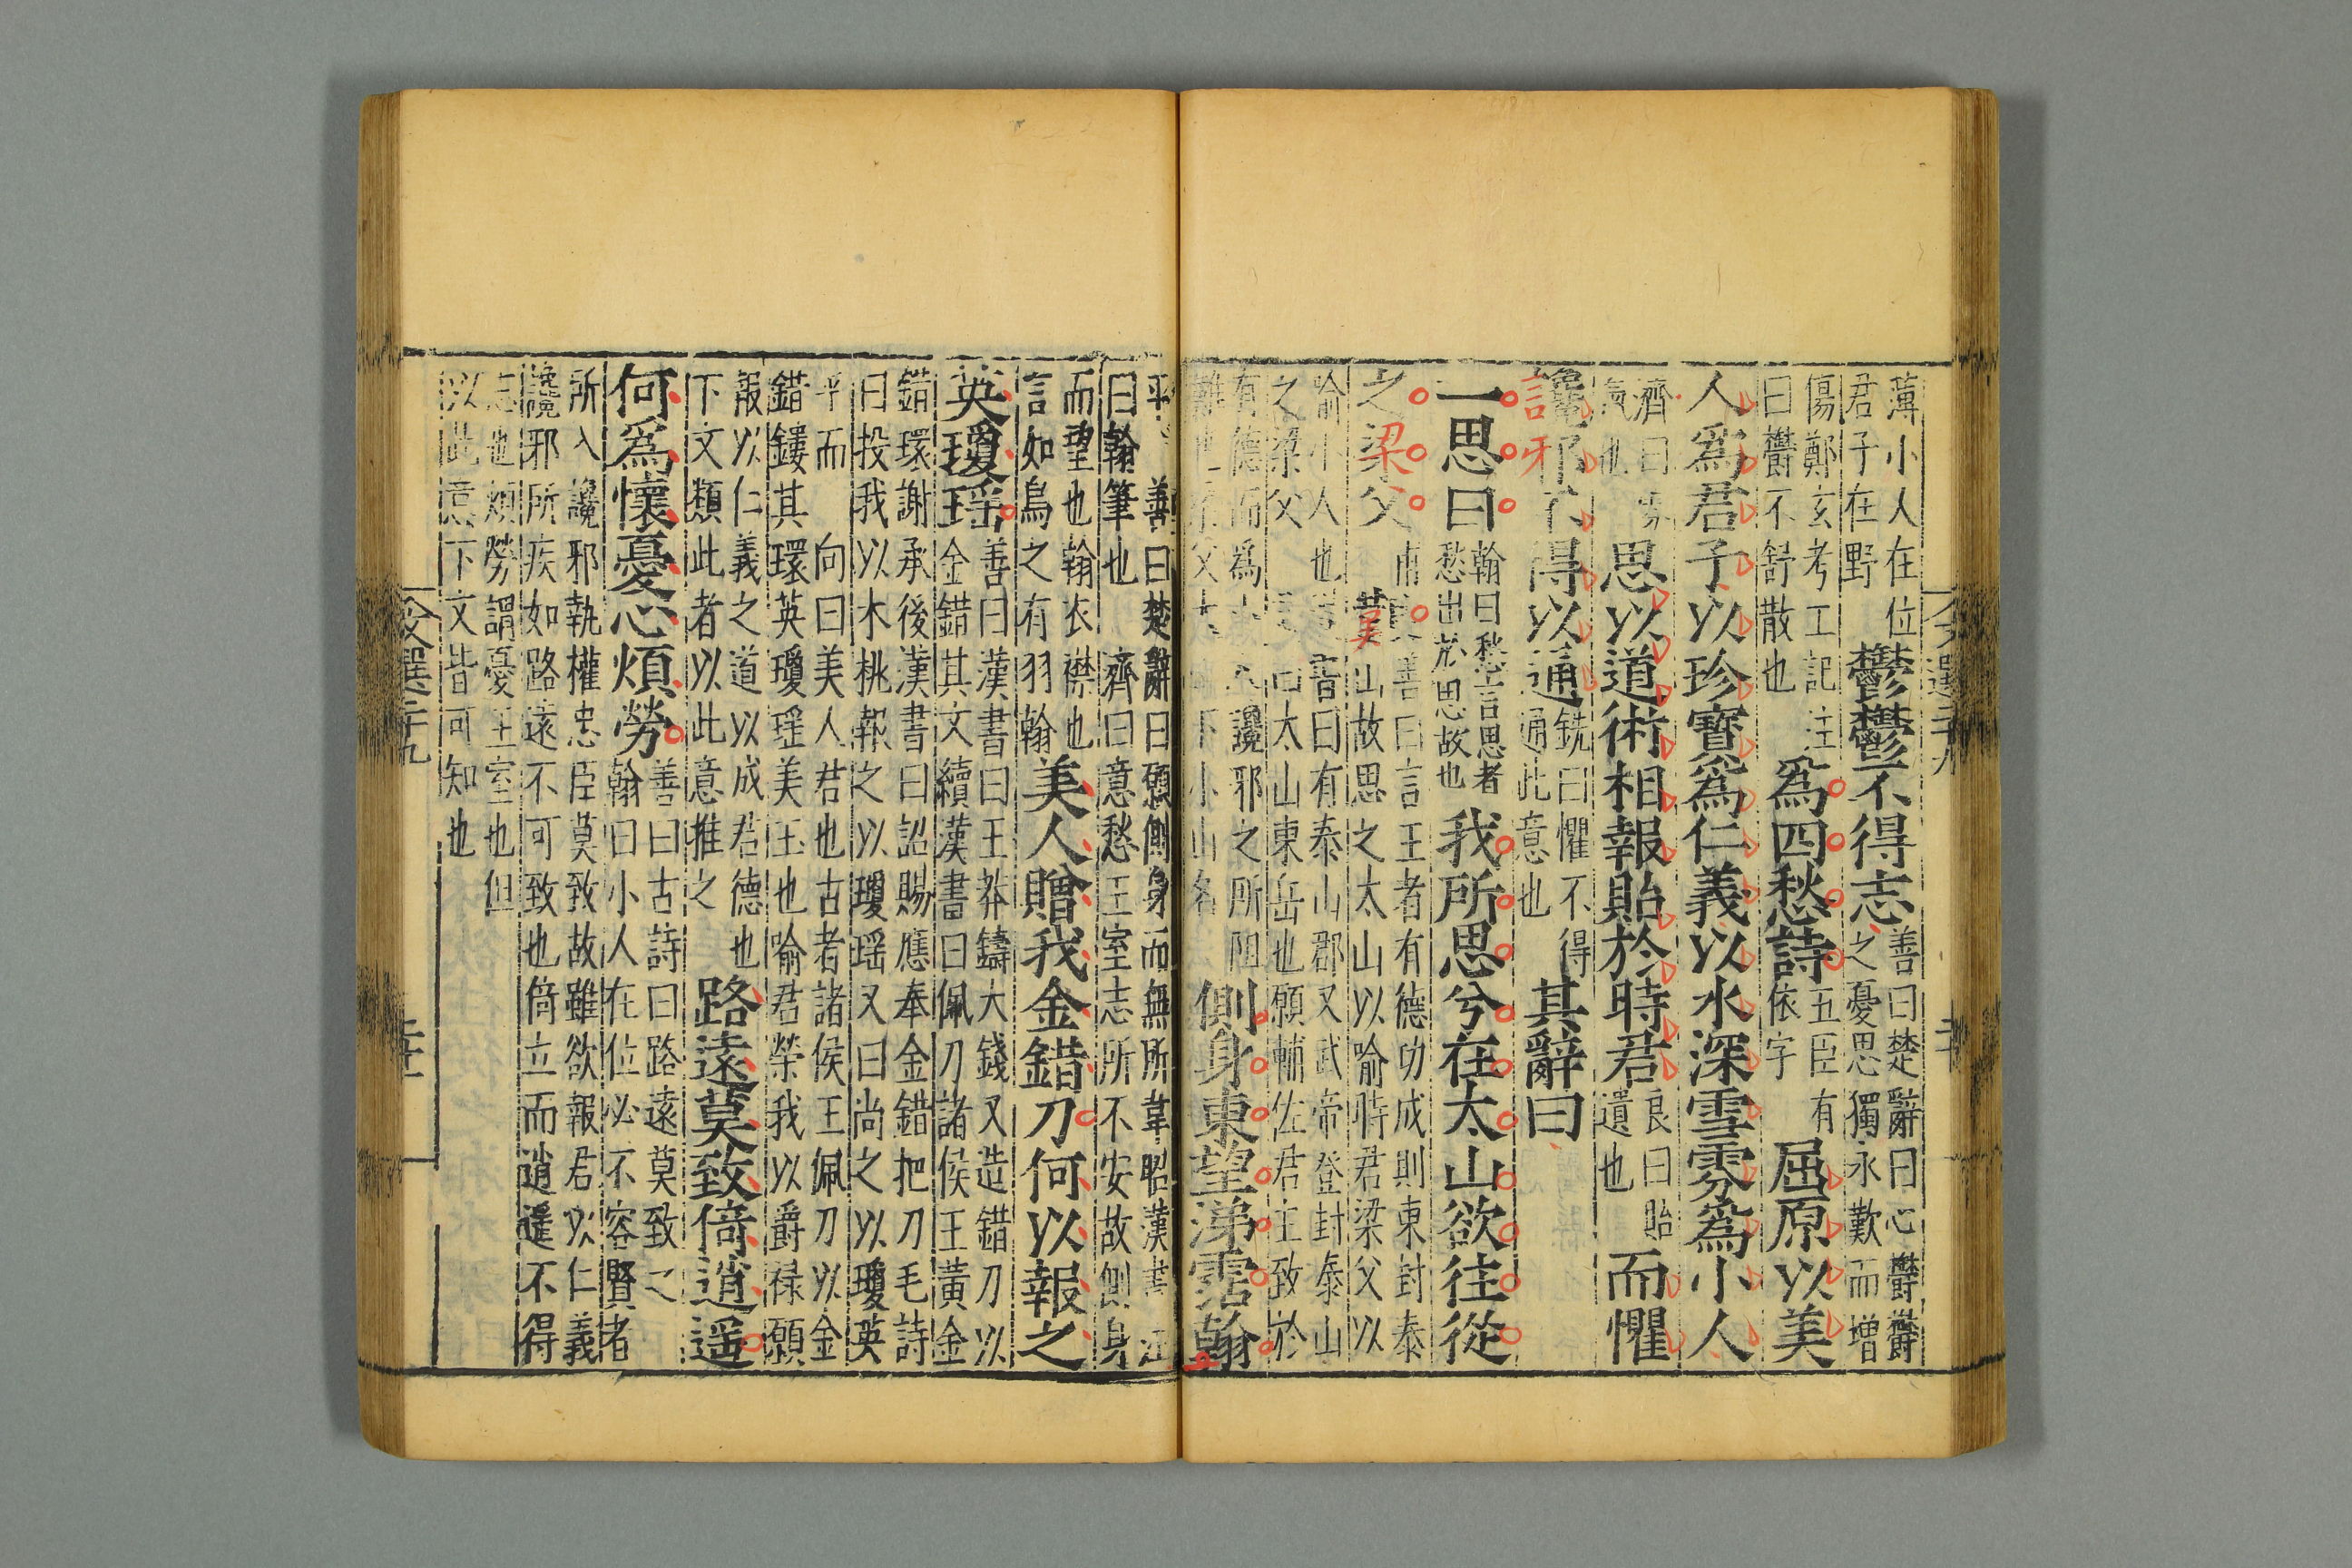 薄小人在位
君子在野
鬱鬱不得志
善曰楚辭曰心鬱鬱
之憂思獨永歎而增
傷鄭玄考工記注
曰鬱不舒散也
為四愁詩
五臣有
依字
屈原以美
人為君子以珍寶為仁義以水深雪雰為小人
濟曰雰
氣也
思以道術相報貽於時君
良曰貽
遺也
而懼
讒邪不得以通
銑曰懼不得
通此意也
其辭曰
一思曰
翰曰愁言思者
愁出於思故也
我所思兮在太山欲往從
之梁父
善曰言王者有德功成則東封泰
山故思之太山以喻時君梁父以
喻小人也 音曰有泰山郡又武帝登封泰山
之梁父 曰太山東岳也願輔佐君王致於
有德而為 讒邪之所阻
難也梁父太山下小山名
側身東望涕霑翰
善曰楚辭曰願側身而無所韋昭漢書注
曰翰筆也 濟曰意愁王室志所不安故側身
而望也翰衣襟也
言如鳥之有羽翰
美人贈我金錯刀何以報之
英瓊瑤
善曰漢書曰王莽鑄大錢又造錯刀以
金錯其文續漢書曰佩刀諸侯王黃金
錯環謝承後漢書曰詔賜應奉金錯把刀毛詩
曰投我以木桃報之以瓊瑤又曰尚之以瓊英
乎而 向曰美人君也古者諸侯王佩刀以金
錯鏤其環英瓊瑤美玉也喻君榮我以爵祿願
報以仁義之道以成君德也
下文類此者以此意推之
路遠莫致倚逍遙
何為懷憂心煩勞
善曰古詩曰路遠莫致之
翰曰小人在位必不容賢者
所入讒邪執權忠臣莫致故雖欲報君以仁義
讒邪所疾如路遠不可致也倚立而逍遙不得
志也煩勞謂憂王室也但
以此意下文皆可知也
文選二十九
文選二十九